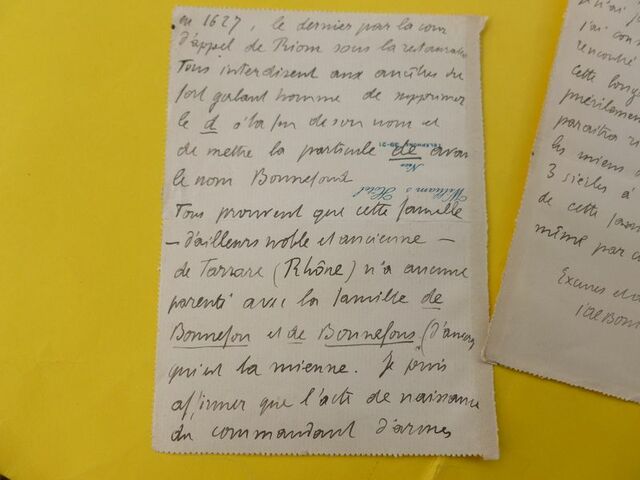 en 1627, le dernier par la cour
d'appel de Riom sous la restauration
Tous interdisent aux ancêtres du
fort galant homme de supprimer
le d à la fin de son nom et
de mettre la particule de avant
le nom Bonnefont
Williams Hôtel
Nice
TELEPHONE
Tous prouvent que cette famille
— d'ailleurs noble et ancienne —
de Tarare (Rhône) n'a aucune
parenté avec la famille de
Bonnefon et de Bonnefons
qui est la mienne. Je puis
affirmer que l'acte de naissance
du commandant d'armes
n'ai
j'ai
rencontré
cette
paraîtra
les miens
3 siècles à
de cette
même par
Excuses